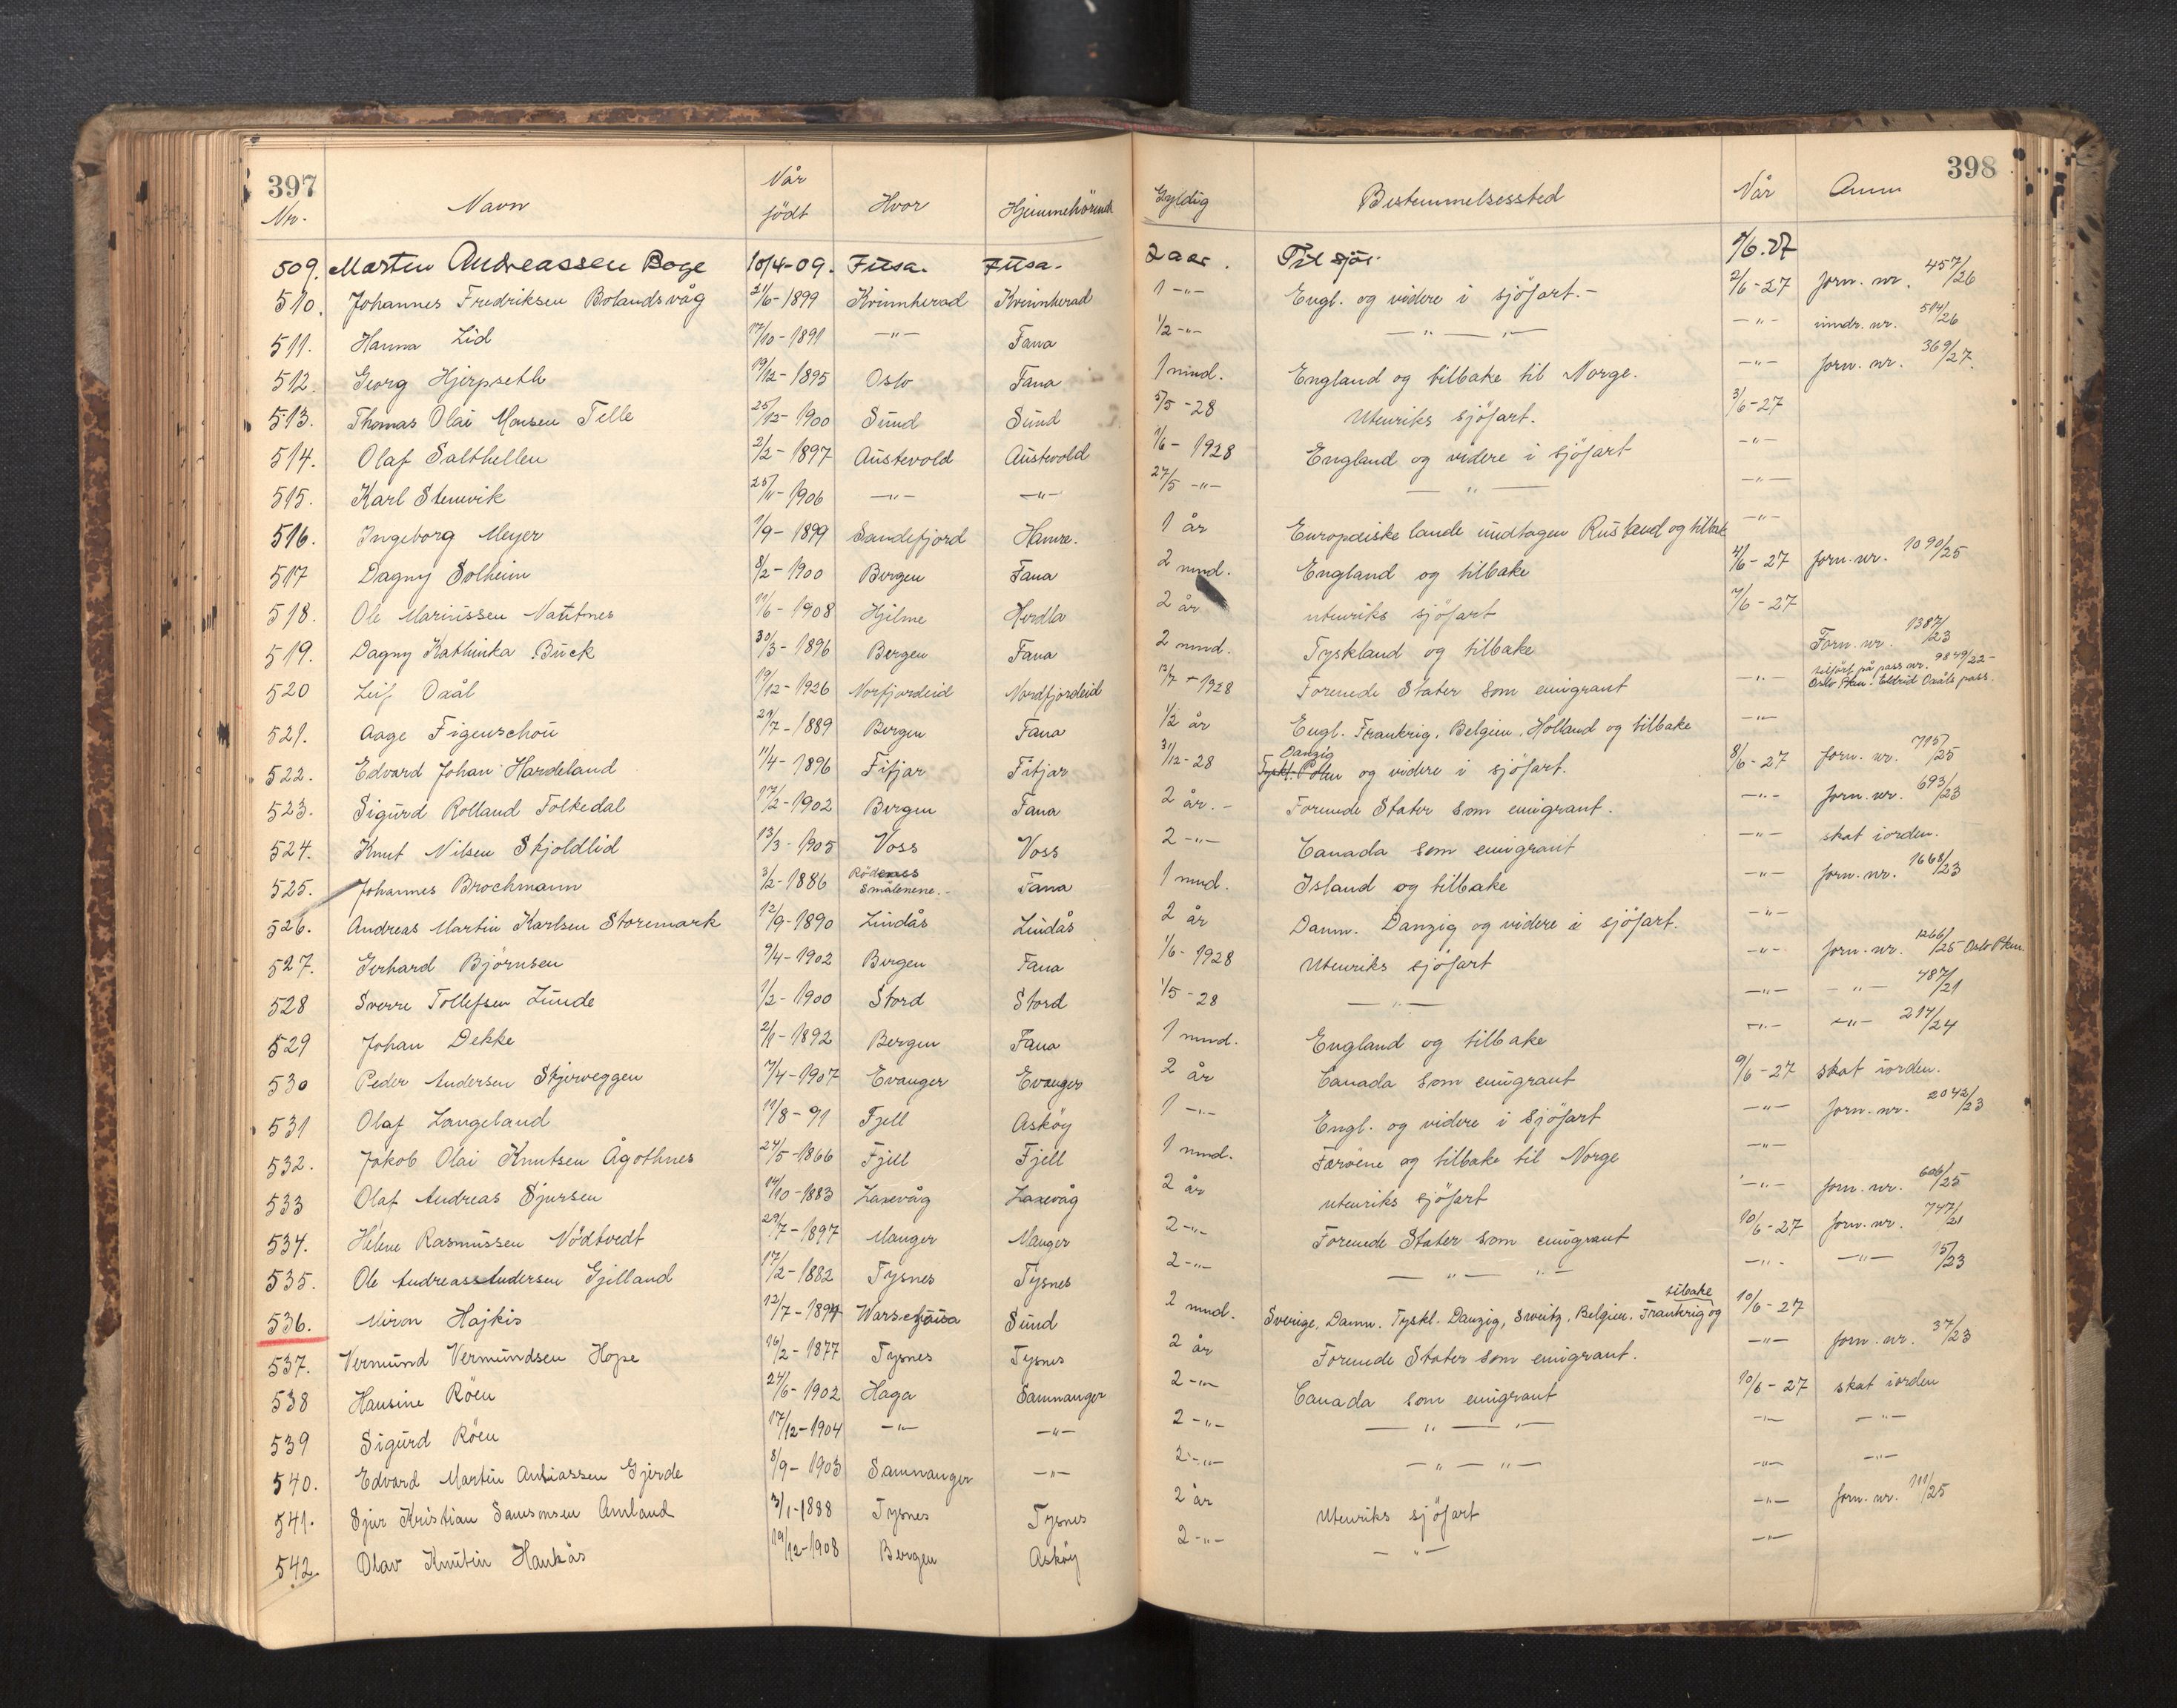 397 398
Nr. Navn Når født Hvor Hjemmehörende Gyldig Bestemmelsessted Når Anm
509. Marten Andreassen Boge 10/4-09. Fusa. Fusa. 2 aar. Til sjøs. 1/6.27
510. Johannes Fredriksen Bolandsvåg 21/6-1899 Kvinnherad Kvinnherad 1 -"- Engl. og videre i sjöfart.- 2/6-27 forn. nr. 457/26
511. Hanna Lid 17/10-1891 -"- Fana 1/2 -"- -"- -"- -"- inndr. nr. 514/26
512. Georg Hjerpseth 19/12-1895 Oslo Fana 1 mnd. England og tilbake til Norge. -"- forn. nr. 369/27.
513. Thomas Olai Monsen Telle 25/12-1900 Sund Sund 5/5-28 Utenriks sjöfart. 3/6-27
514. Olaf Salthellen 2/2-1897 Austevold Austevold 1/6-1928 England og videre i sjöfart -"-
515. Karl Stenevik 25/11-1906 -"- -"- 27/5 -"- -"- -"-
516. Ingeborg Meyer 1/9-1899 Sandefjord Hamre. 1 år Europæiske lande undtagen Rusland og tilbak -"-
517 Dagny Solheim 8/2-1900 Bergen Fana 2 mnd. England og tilbake 4/6-27 forn. nr. 1090/25
518. Ole Mariussen Nautnes 11/6-1908 Hjelme Herdla 2 år utenriks sjöfart 7/6-27
519. Dagny Kathinka Buck 30/3-1896 Bergen Fana 2 mnd. Tyskland og tilbake Forn. nr. 1387/23
520 Leif Oaål 19/12-1926 Norfjordeid Nordfjordeid 13/7-1928 Forenede Stater som emigrant -"- tilfört på pass nr. 9849/22- Oslo Pkm. Eldrid Oaåls pass.
521. Aage Figenschou 29/7-1889 Bergen Fana 1/2 år Engl. Frankrig, Belgien, Holland og tilbake -"-
522. Edvard Johan Hardeland 11/4-1896 Fitjar Fitjar 31/12-28 Tyskl. Polen Danzig og videre i sjöfart. 8/6-27 forn. nr. 715/25
523. Sigurd Rolland Folkedal 17/2-1902 Bergen Fana 2 år.- Forenede Stater som emigrant. -"- forn. nr. 693/23
524. Knut Nilsen Skjoldlid 13/3-1905 Voss Voss 2 -"- Canada som emigrant -"- skat iorden.
525. Johannes Brochmann 3/2-1886 Rödenes Smålenene.- Fana 1 mnd. Island og tilbake -"- forn. nr. 1668/23
526. Andreas Martin Karlsen Storemark 12/9-1890 Lindås Lindås 2 år Danm. Danzig og videre i sjöfart. -"-
527. Gerhard Björnsen 9/4-1902 Bergen Fana 1/6-1928 Utenriks sjöfart -"- forn. nr. 1266/25 Oslo Pkm.
528 Sverre Tollefsen Lunde 1/2-1900 Stord Stord 1/5-28 -"- -"- -"- 487/21
529 Johan Dekke 2/1-1892 Bergen Fana 1 mnd. England og tilbake -"- -"- 214/24
530 Peder Andersen Skjerveggen 7/4-1907 Evanger Evanger 2 år Canada som emigrant 9/6-27 skat iorden.
531 Olaf Langeland 11/8-91 Fjell Asköy 1 -"- Engl. og videre i sjöfart -"- forn. nr. 2042/23
532. Jakob Olai Knutsen Ågothnes 27/5-1866 Fjell Fjell 1 mnd. Færöene og tilbake til Norge -"-
533 Olaf Andreas Sjursen 14/10-1883 Laxevåg Laxevåg 2 år utenriks sjöfart -"- forn. nr. 606/25
534. Helene Rasmussen Nödtvedt 29/7-1897 Manger Manger 2 -"- Forenede Stater som emigrant 10/6-27 forn. nr. 747/21
535. Ole Andreas Andersen Gjilland 17/2-1882 Tysnes Tysnes 2 -"- -"- -"- -"- -"- 15/23
536. Miron Hajkis 12/7-1894 Warschaua Sund 2 mnd. Sverige, Danm. Tyskl. Danzig, Sweitz, Belgien, Frankrig og tilbake 10/6-27
537. Vermund Vermundsen Hope 16/2-1877 Tysnes Tysnes 2 år Forenede Stater som emigrant. -"- forn. nr. 37/23
538 Hansine Röen 24/6-1902 Haga Samnanger 2 -"- Canada som emigrant 10/6-27 skat iorden
539 Sigurd Röen 17/12-1904 -"- -"- 2 -"- -"- -"- -"- -"-
540. Edvard Martin Antiassen Gjerde 8/9-1903 Samnanger -"- 2 -"- -"- -"- -"- -"-
541. Sjur Kristian Samsonsen Amland 3/1-1888 Tysnes Tysnes 2 år Utenriks sjöfart -"- forn. nr. 111/25
542. Olav Knutin Haukås 19/12-1908 Bergen Asköy 2 -"- -"- -"-